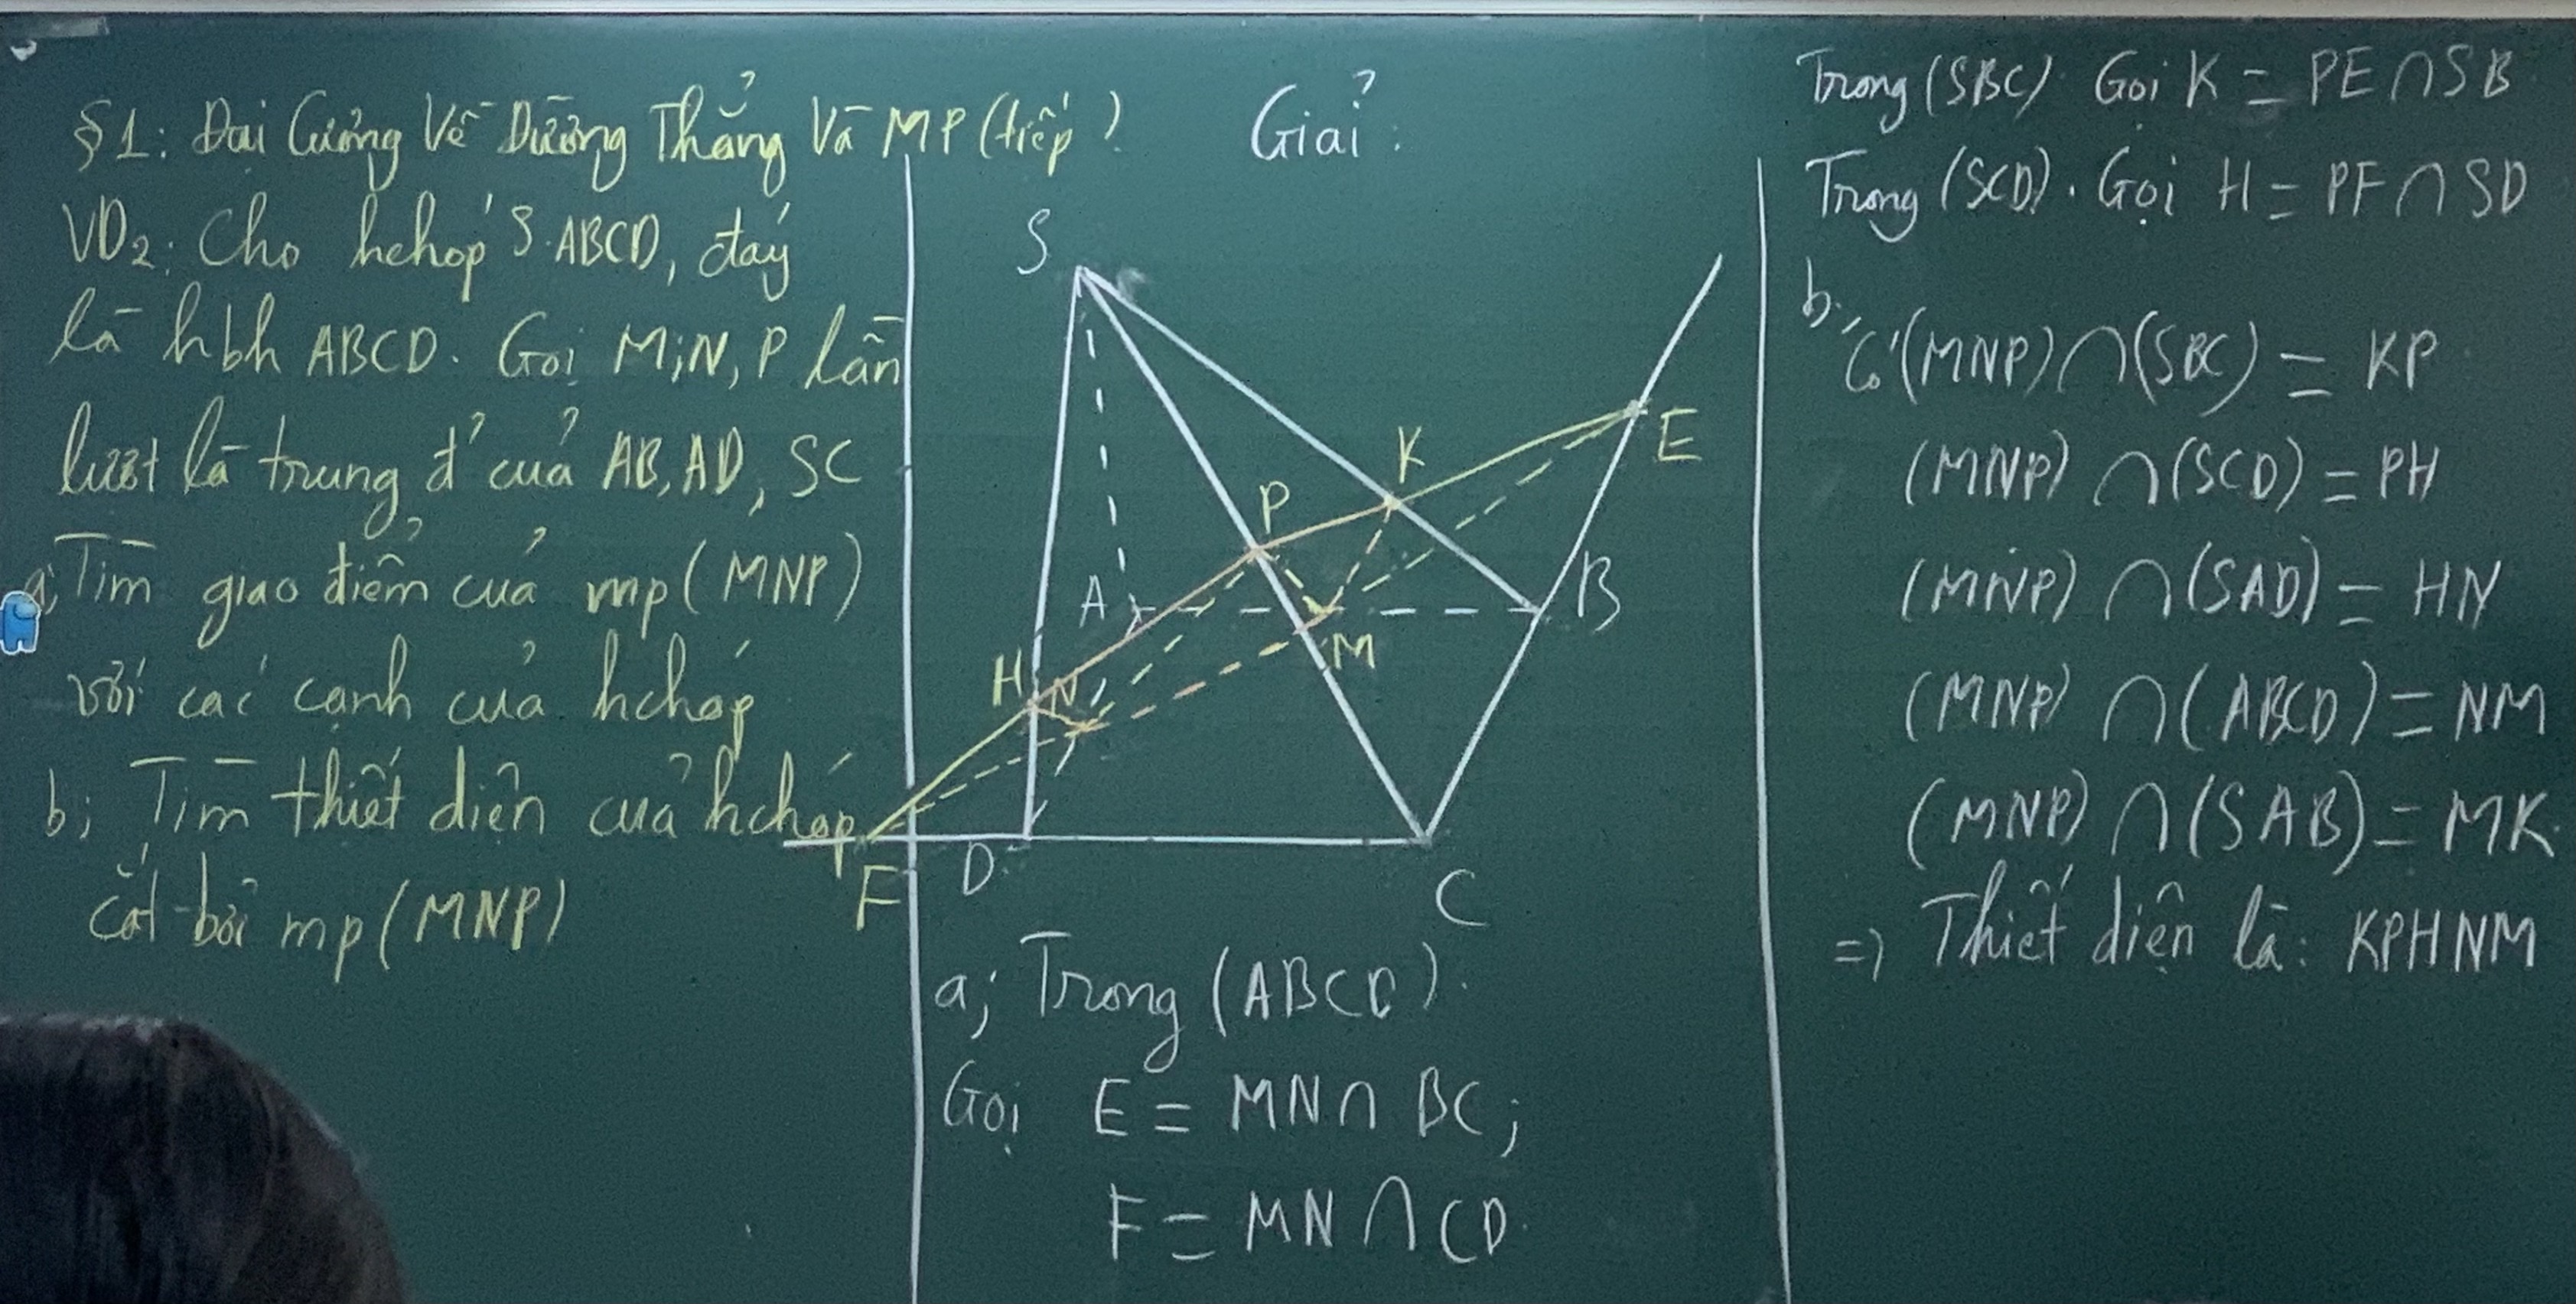 §1: Đại Cương Về Đường Thẳng Và MP (tiếp)
VD2: Cho hchóp S.ABCD, đáy
là hbh ABCD. Gọi M;N, P lần
lượt là trung đ' của AB, AD, SC
a; Tìm giao điểm của mp(MNP)
với các cạnh của hchóp
b; Tìm thiết diện của hchóp
cắt bởi mp(MNP)
Giải:
S
E
K
P
A
B
M
H
N
F
D
C
a; Trong (ABCD).
Gọi E = MN ∩ BC;
F = MN ∩ CD
Trong (SBC). Gọi K = PE ∩ SB
Trong (SCD). Gọi H = PF ∩ SD
b; Có (MNP) ∩ (SBC) = KP
(MNP) ∩ (SCD) = PH
(MNP) ∩ (SAD) = HN
(MNP) ∩ (ABCD) = NM
(MNP) ∩ (SAB) = MK.
=) Thiết diện là: KPHNM